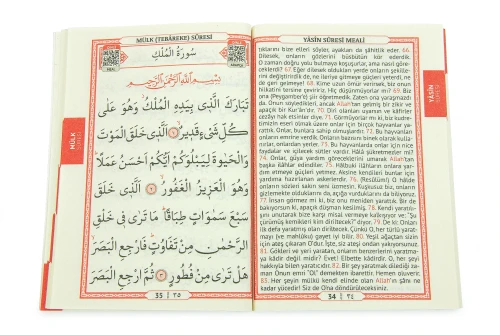 MÜLK (TEBÂREKE) SÛRESİ
سُورَةُ الْمُلْكِ
بِسْمِ اللّٰهِ الرَّحْمٰنِ الرَّحِيمِ
تَبَارَكَ الَّذِى بِيَدِهِ الْمُلْكُ وَهُوَ عَلٰى
كُلِّ شَىْءٍ قَدِيرٌ ١ اَلَّذِى خَلَقَ الْمَوْتَ
وَالْحَيٰوةَ لِيَبْلُوَكُمْ اَيُّكُمْ اَحْسَنُ عَمَلًا
وَهُوَ الْعَزِيزُ الْغَفُورُ ٢ اَلَّذِى خَلَقَ
سَبْعَ سَمٰوَاتٍ طِبَاقًا مَا تَرٰى فِى خَلْقِ
الرَّحْمٰنِ مِنْ تَفَاوُتٍ فَارْجِعِ الْبَصَرَ
هَلْ تَرٰى مِنْ فُطُورٍ ٣ ثُمَّ ارْجِعِ الْبَصَرَ
35 ٣٥
MÜLK
YÂSÎN SÛRESİ MEALİ
tıklarını bize elleri söyler, ayakları da şâhitlik eder. 66.
Dilesek, onların gözlerini büsbütün kör ederdik.
O zaman doğru yolu bulmaya koşuşurlar, ama nasıl göre-
ceklerdi? 67. Eğer dilesek oldukları yerde onların şekille-
rini değiştirirdik de, ne ileriye gitmeye güçleri yeterdi, ne
de geri gelmeye! 68. Kime uzun ömür verirsek, biz onun
hilkatini tersine çeviririz. Hiç düşünmüyorlar mı? 69. Biz
ona (Peygamber'e) şiir öğretmedik. Zaten ona yaraşmazdı
da. Onun söyledikleri, ancak Allah'tan gelmiş bir zikir ve
apaçık bir Kur'an'dır. 70. Diri olanları uyarsın ve kâfirler
cezâyı hak etsinler diye. 71. Görmüyorlar mı ki, biz kudre-
timizin eseri olmak üzere onlar için birçok hayvanlar ya-
rattık. Onlar, bunlara sahip olmuşlardır. 72. Bu hayvanları
onların emrine verdik. Onların bazısını binek olarak kulla-
nırlar, onlardan yerler. 73. Bu hayvanlarda onlar için nice
faydalar ve içilecek sütler vardır. Hâlâ şükretmezler mi?
74. Onlar, güya yardım göreceklerini umarak Allah'tan
başka ilâhlar edindiler. 75. Hâlbuki ilâhların onlara yar-
dım etmeye güçleri yetmez. Aksine kendileri bunlar için
yardıma hazırlanan askerlerdir. 76. (Resûlüm!) O hâlde
onların sözleri sakın seni üzmesin. Kuşkusuz biz, onların
gizlemekte olduklarını da, açığa vurduklarını da biliyoruz.
77. İnsan görmez mi ki, biz onu meniden yarattık. Bir de
bakıyorsun ki, apaçık düşman kesilmiş. 78. Kendi yaratılı-
şını unutarak bize karşı misal vermeye kalkışıyor ve: "Şu
çürümüş kemikleri kim diriltecek?" diyor. 79. De ki: Onları
ilk defa yaratmış olan diriltecek. Çünkü O, her türlü yarat-
mayı (ve mahlûku) gayet iyi bilir. 80. Yeşil ağaçtan sizin
için ateş çıkaran O'dur. İşte, siz ateşi ondan yakıyorsunuz.
81. Gökleri ve yeri yaratan, onların benzerlerini yaratma-
ya kâdir değil midir? Evet! Elbette kâdirdir. O, her şeyi
hakkıyla bilen yaratıcıdır. 82. Bir şey yaratmak dilediği za-
man Onun emri "Ol" demekten ibarettir. Hemen oluverir.
83. Her şeyin mülkü kendi elinde olan Allah'ın şânı ne
kadar yücedir! Siz de Ona döndürüleceksiniz.
34 ٣٤
YÂSÎN